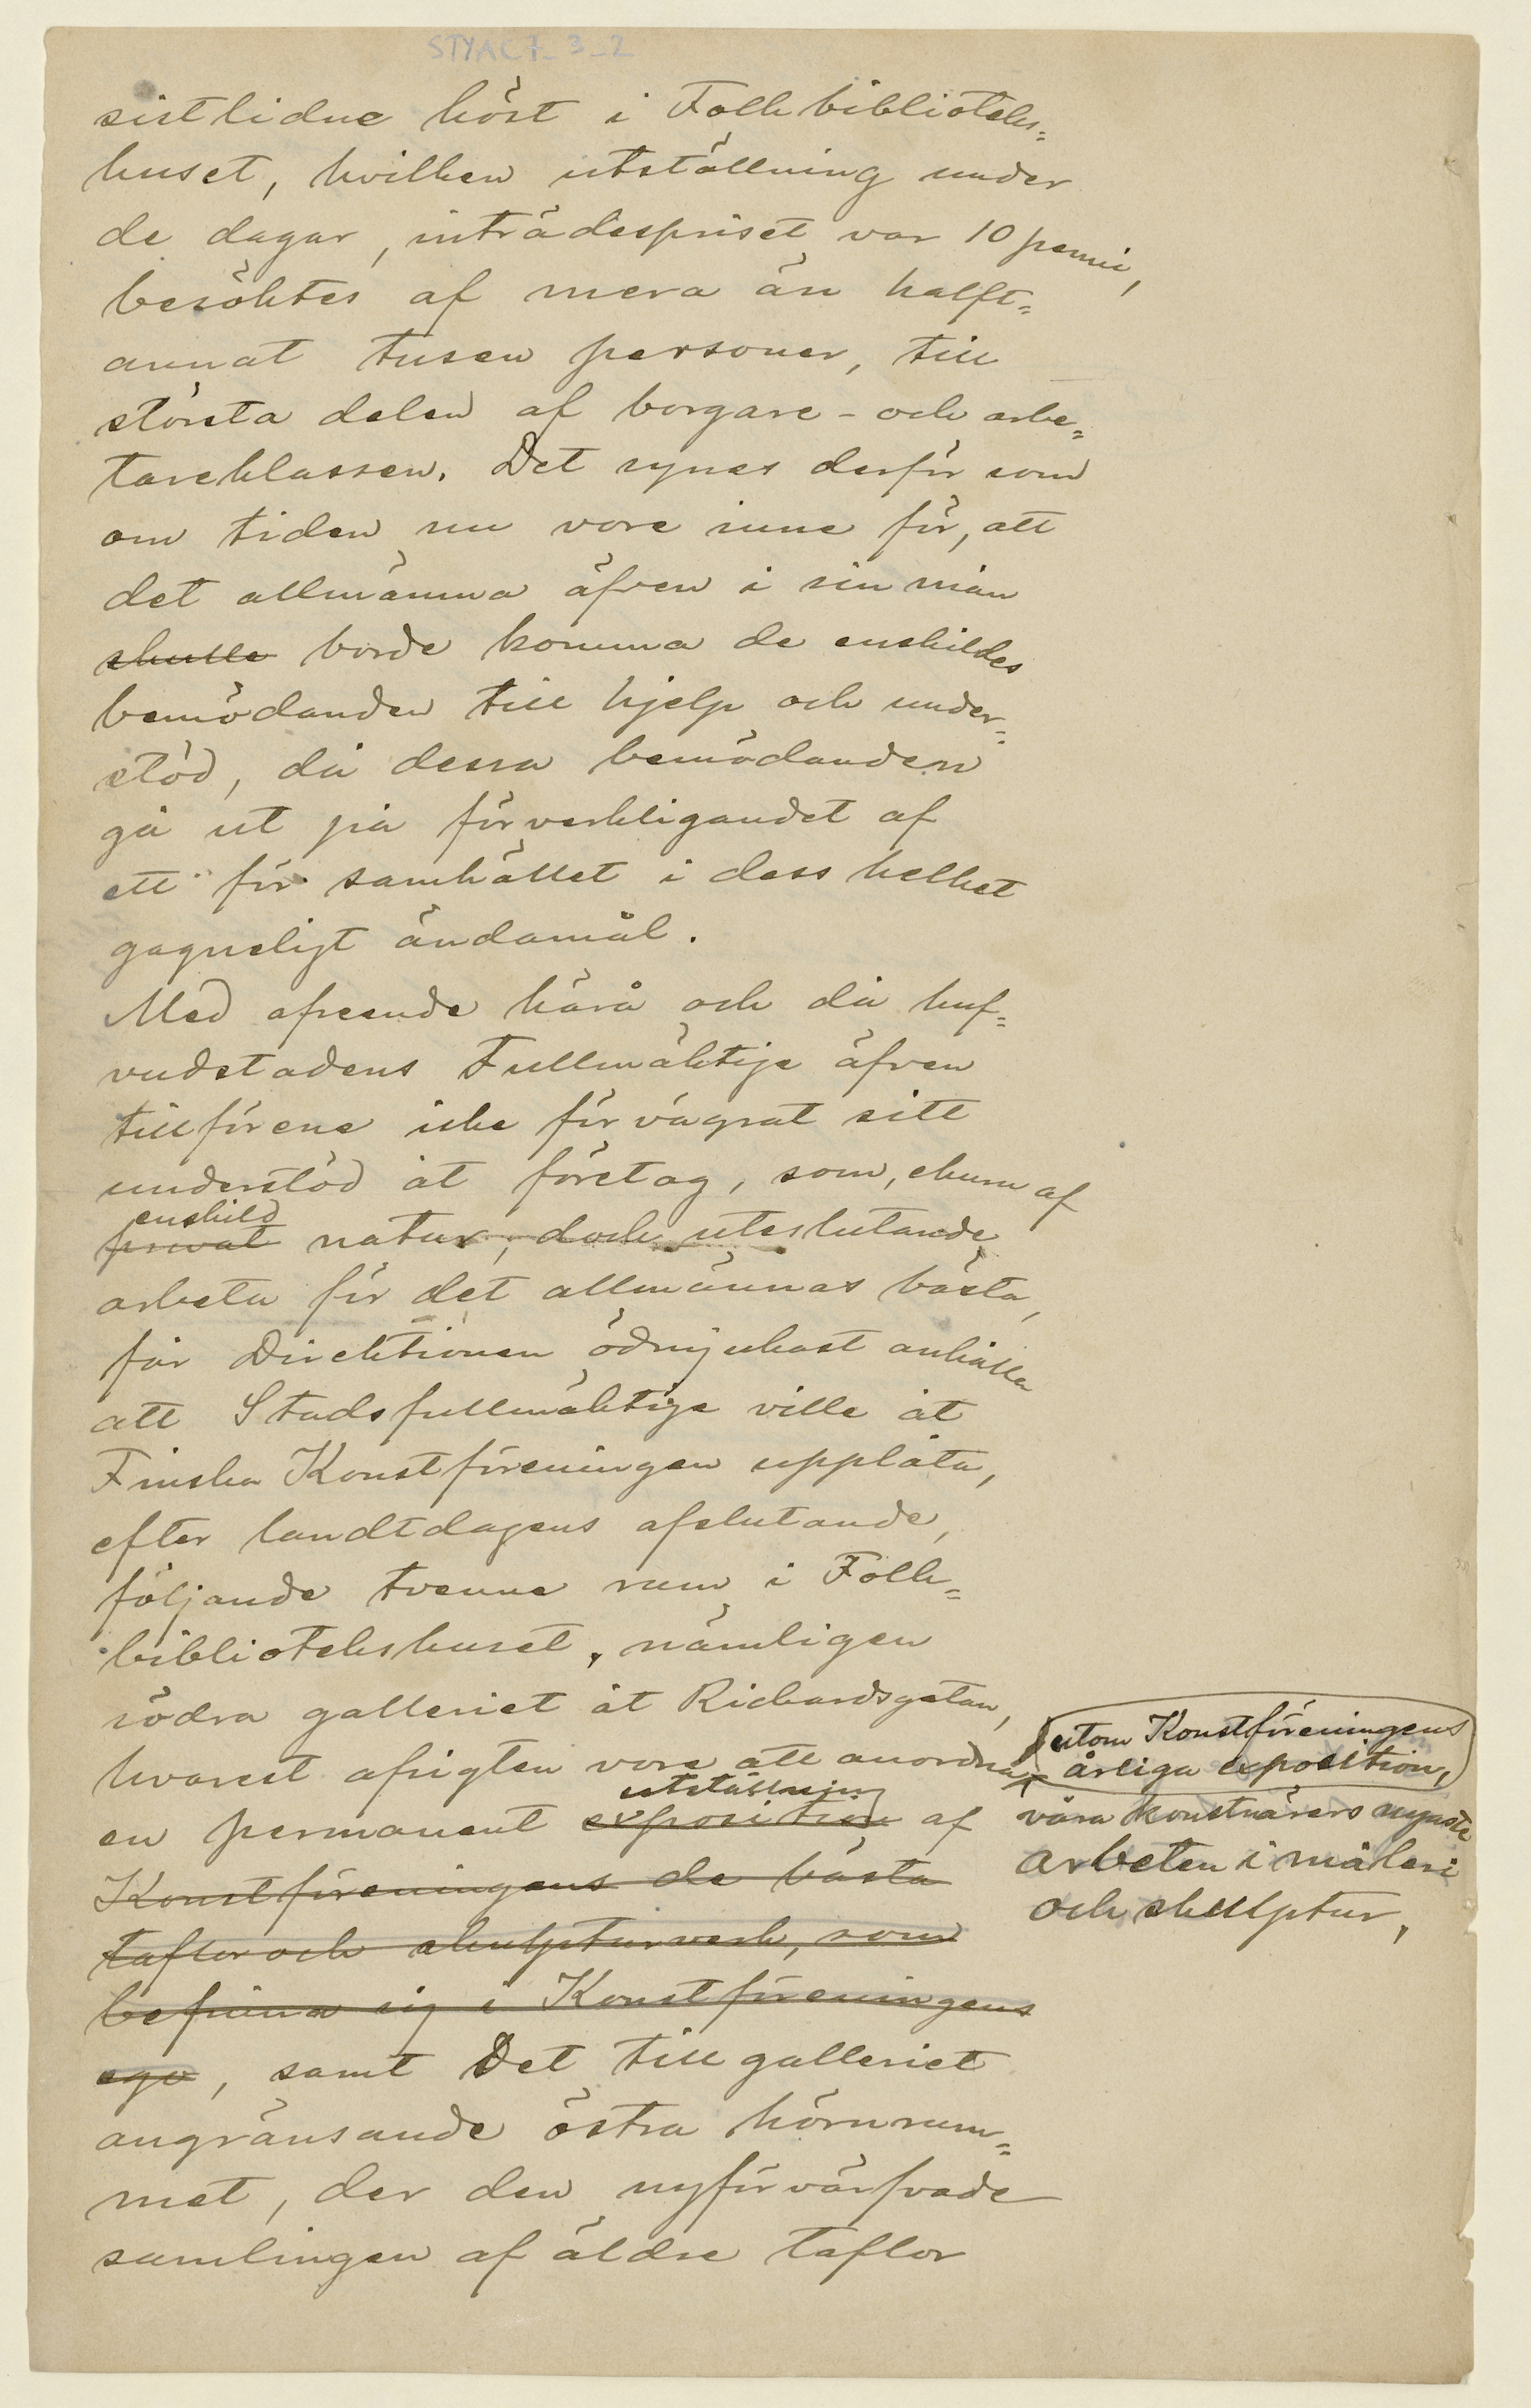 STYAC7_3_2
sistlidne höst i Folkbiblioteks=
huset, hvilken utställning under
de dagar, inträdespriset var 10 penni,
besöktes af mera än halft=
annat tusen personer, till
största delen af borgare- och arbe=
tareklassen. Det synes derför som
om tiden nu vore inne för, att
det allmänna äfven i sin mån
skulle borde komma de enskildes
bemödanden till hjelp och under=
stöd, då dessa bemödanden
gå ut på förverkligandet af
ett för samhället i dess helhet
gagneligt ändamål.
Med afseende härå och då huf=
vudstadens Fullmäktige äfven
tillförene icke förvägrat sitt
understöd åt företag, som, ehuru af
enskild
privat natur, dock uteslutande
arbeta för det allmännas bästa,
får Direktionen ödmjukast anhålla
att Stadsfullmäktige ville åt
Finska Konstföreningen upplåta,
efter landtdagens afslutande,
följande tvenne rum i Folk=
bibliotekshuset, nämligen
södra galleriet åt Richardsgatan,
hvarest afsigten vore att anordna
utom Konstföreningens
årliga exposition,
utställning
en permanent exposition af
våra konstnärers nyaste
arbeten i måleri
och skulptur,
Konstföreningens de bästa
taflor och skulpturverk, som
befinna sig i Konstföreningens
ego, samt Det till galleriet
angränsande östra hörnrum=
met, der den nyförvärfvade
samlingen af äldre taflor